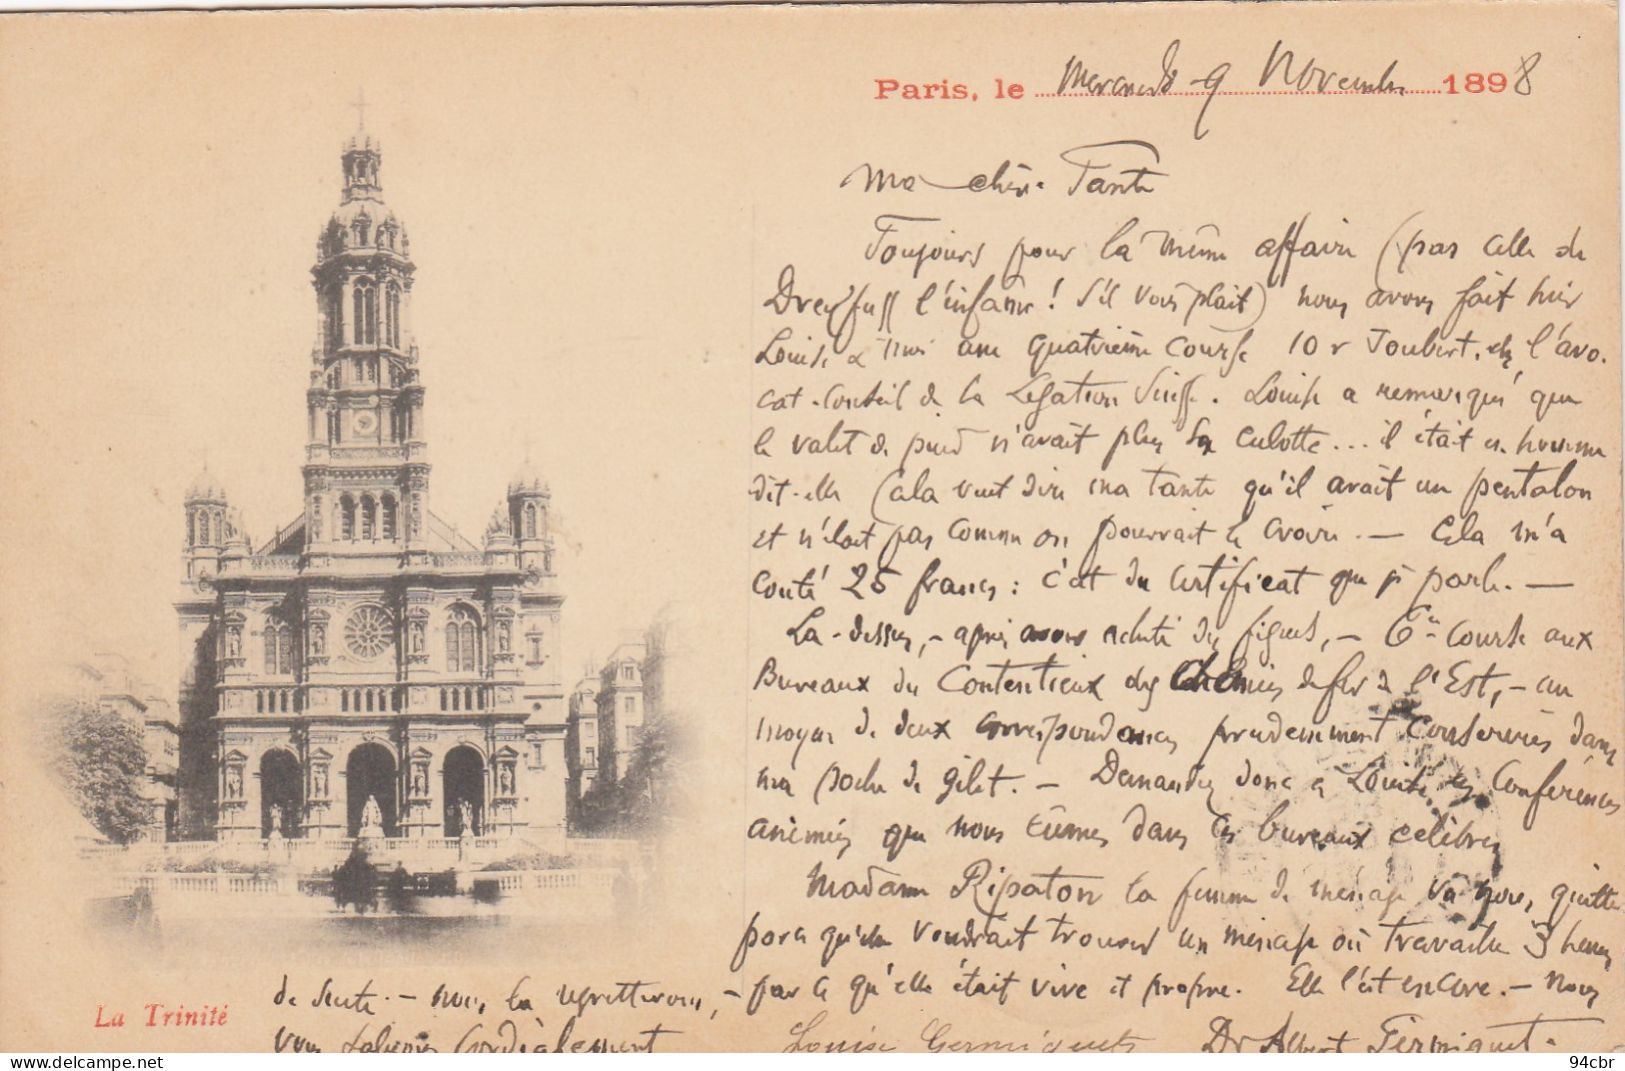 Paris, le Mercredi 9 Novembre 1898
Ma chère Tante
Toujours pour la même affaire (pas celle de
Dreyfuss l'infâme ! s'il vous plait) nous avons fait hier
Louise & moi une quatrième course 10 r Joubert, chez l'avo-
cat-conseil de la Légation Suisse. Louise a remarqué que
le valet de pied n'avait plus sa culotte... il était en homme
dit-elle (cela veut dire ma tante qu'il avait un pantalon
et n'était pas comme on pourrait le croire. — Cela m'a
couté 25 francs : c'est du certificat que je parle. —
Là-dessus, - après avoir acheté des figues, - 6e course aux
Bureaux du Contentieux des Chemins de fer de l'Est, - au
moyen de deux correspondances prudemment conservées dans
ma poche de gilet. - Demandez donc à Louise les Conférences
animées que nous eûmes dans ces bureaux célèbres
Madame Ripaton la femme de ménage va nous quitter
parce qu'elle voudrait trouver un ménage où travailler 3 heures
de suite. - nous la regretterons, - par ce qu'elle était vive et propre. Elle l'est encore. - Nous
vous saluons cordialement
Louise Dr Albert
La Trinité
94cbr